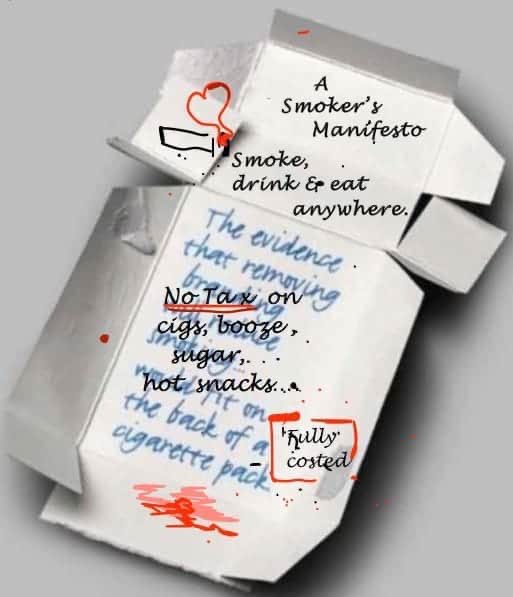 A
Smoker's
Manifesto
Smoke,
drink & eat
anywhere.
The evidence
that removing
branding
No Tax on
cigs, booze,
sugar,...
hot snacks...
would fit on
the back of a
cigarette pack
'Fully'
costed